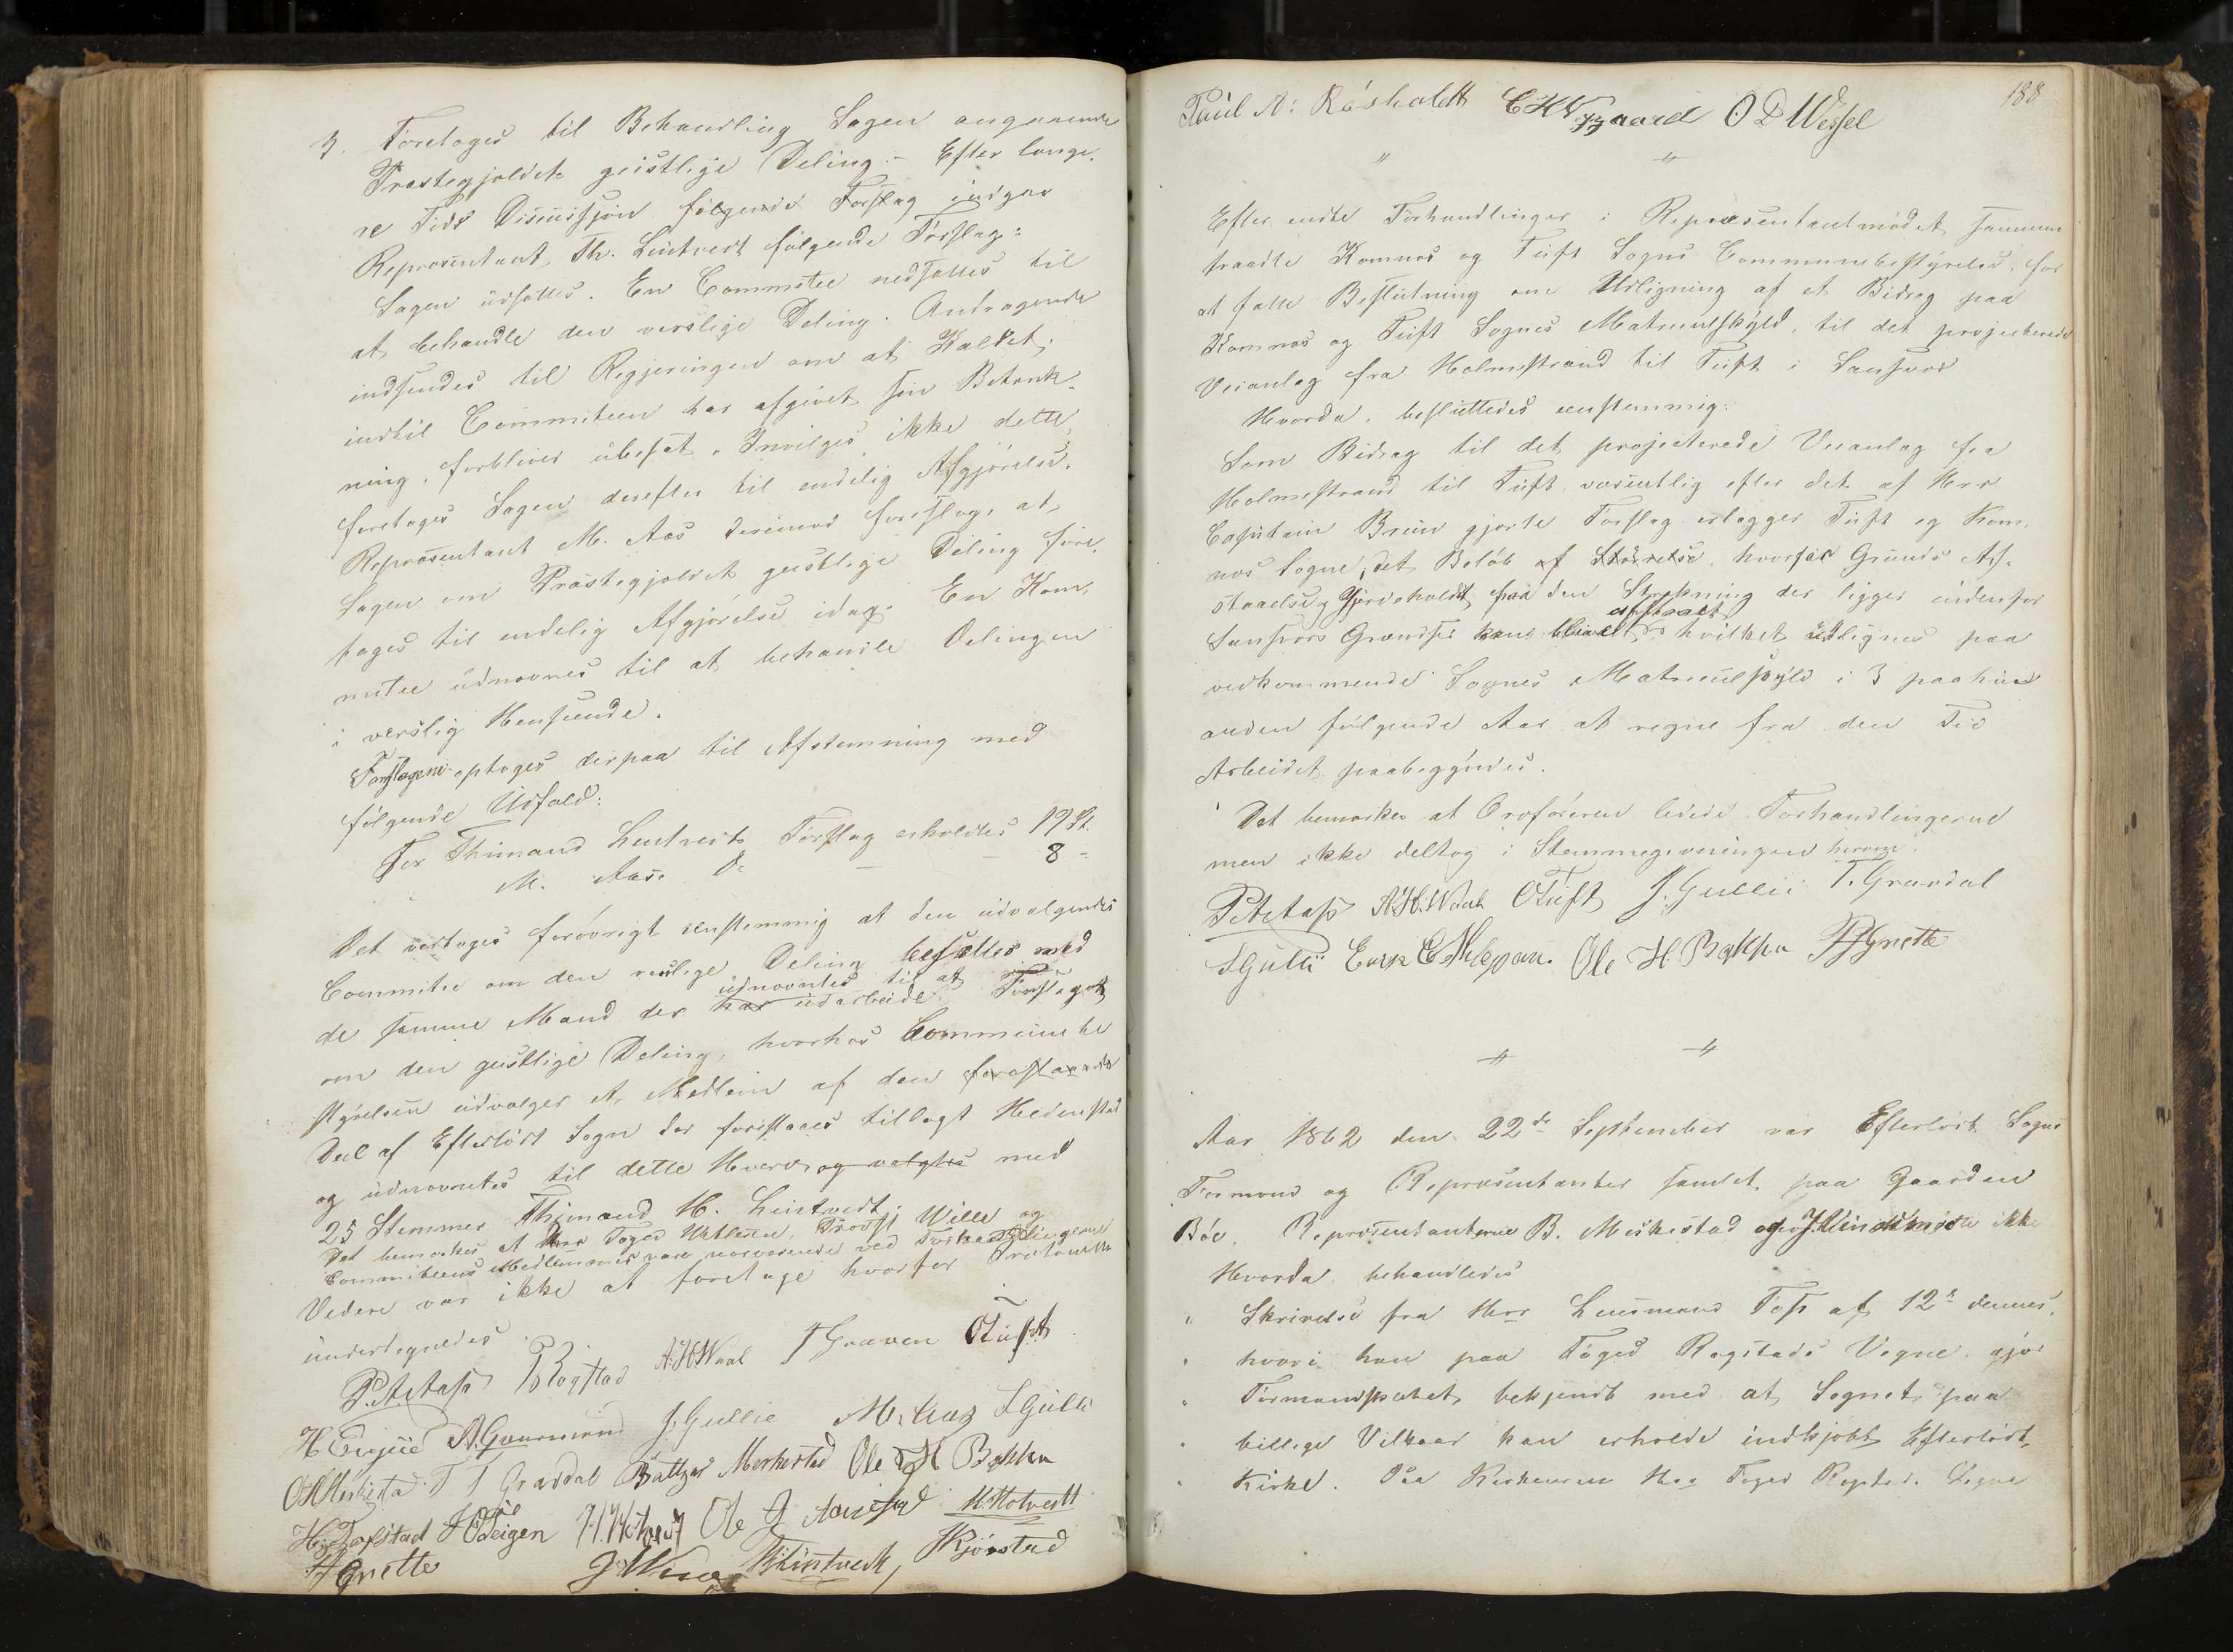 3. Foretoges til Behandling Sagen angaaende
Præstegjeldets geistlige Deling. - Efter længe-
re Tids Discussjon følgende Forslag indgav
Repræsentant Th. Lintvedt følgende Forslag:
Sagen udsættes. En Committee nedsættes til
at behandle den verslige Deling. Andragende
indsendes til Regjeringen om at Kaldet,
indtil Committeen har afgivet sin Betænk-
ning, forbliver ubesat. Invilges ikke dette,
foretages Sagen derefter til endelig Afgjørelse.
Repræsentant M. Aas derimod foreslog, at
Sagen om Præstegjeldets geistlige Deling fore-
tages til endelig Afgjørelse idag. En Kom-
mitee udnævnes til at behandle Delingen
i verslig Henseende.
Forslagene optoges derpaa til Afstemning med
følgende Udfald:
For Thimand Lintvedts Forslag erholdtes 19 St.
M. Aas. Do — — 8 -
Det vedtoges forøvrigt eenstemmig at den udvalgendes
Commitee om den verslige Deling besættes med
udnævntes til at
de samme Mænd der har udarbeide Forslaget
om den geistlige Deling, hvorhos Communebe
styrelsen udvælger et Medlem af den foreslaaede
Deel af Eftelødt Sogn der foreslaaes tillagt Hedenstad
og udnævntes til dette Hverv og valgtes med
25 Stemmer Thimand H. Lintvedt.
Det bemærkes at Herr Foged Provst Wille og
Committeens Medlemmer vare nærværende ved Forhandlingerne
Videre var ikke at foretage hvorfor Protocollen
undertegnedes.
P. A. Aass Rogstad A.H. Waal T Graven OTuft
J. Gullie M. Aas S Gulli
T T Gravdal Baltzer Merkested Ole H Bakka
H. Tofstad Teigen Ole J
Gnette Lintvedt Kjørstad
188
Paul N: Råsholdt Nygaard O D Wessel
" "
Efter endte Forhandlinger i Repræsentantmødet sammen
traadte Komnæs og Tuft Sogns Communebestyrelse for
at fatte Beslutning om Udligning af et Bidrag paa
Komnæs og Tuft Sognes Matriculskyld, til det projecterede
Veianlæg fra Holmestrand til Tuft i Sandsvær
Hvorda, besluttedes eenstemmig:
Som Bidrag til det projecterede Veianlæg fra
Holmestrand til Tuft, væsentlig efter det af Herr
Capitain Bruun gjorte Forslag erlægger Tuft og Kom-
næs Sogne, det Beløb af Størrelse, hvorfor Grunds Af-
staaelse, Gjerdehold, paa den Strækning der ligger indenfor
opstaaet
Sandsværs Grændser kan bliver hvilket udlignes paa
vedkommende Sognes Matriculskyld i 3 paa hin
anden følgende Aar at regne fra den Tid
Arbeidet paabegyndes.
Det bemærkes at Ordføreren ledede Forhandlingerne
men ikke deltog i Stemmegivningen herom.
P. A. Aass A.H. Waal OTuft J. Gullie T. Gravdal
SGulli Erik Ole H. Bakka Gnette
" "
Aar 1862 den 22de September var Eftelødt Sogns
Formænd og Repræsentanter samlet paa Gaarden
Bøe. Repræsentanterne B. Merkestad og mødte ikke
Hvorda behandledes
" Skrivelse fra Herr Lensmand Foss af 12te dennes,
" hvori han paa Foged Rogstads Vegne gjør
" Formandskabet bekjendt med at Sognet paa
" billige Vilkaar kan erholde indkjøbt Eftelødt
" Kirke. Paa Kirkeeieren Herr Foged Rogstads Vegne